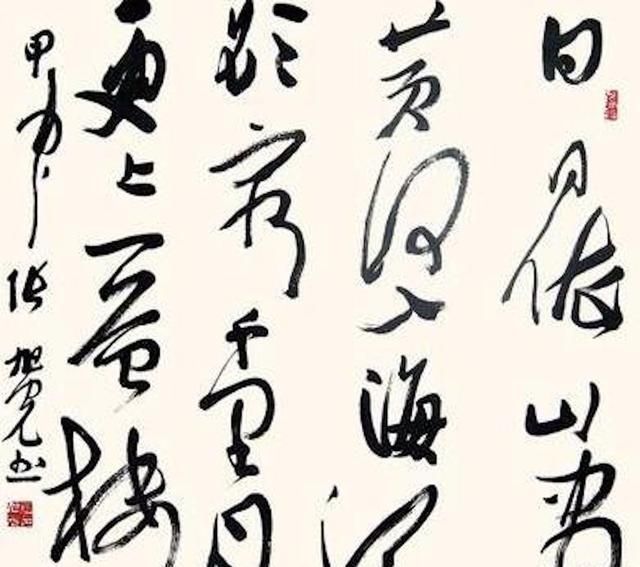 白日依山尽
黄河入海流
欲穷千里目
更上一层楼
甲午 张旭光书